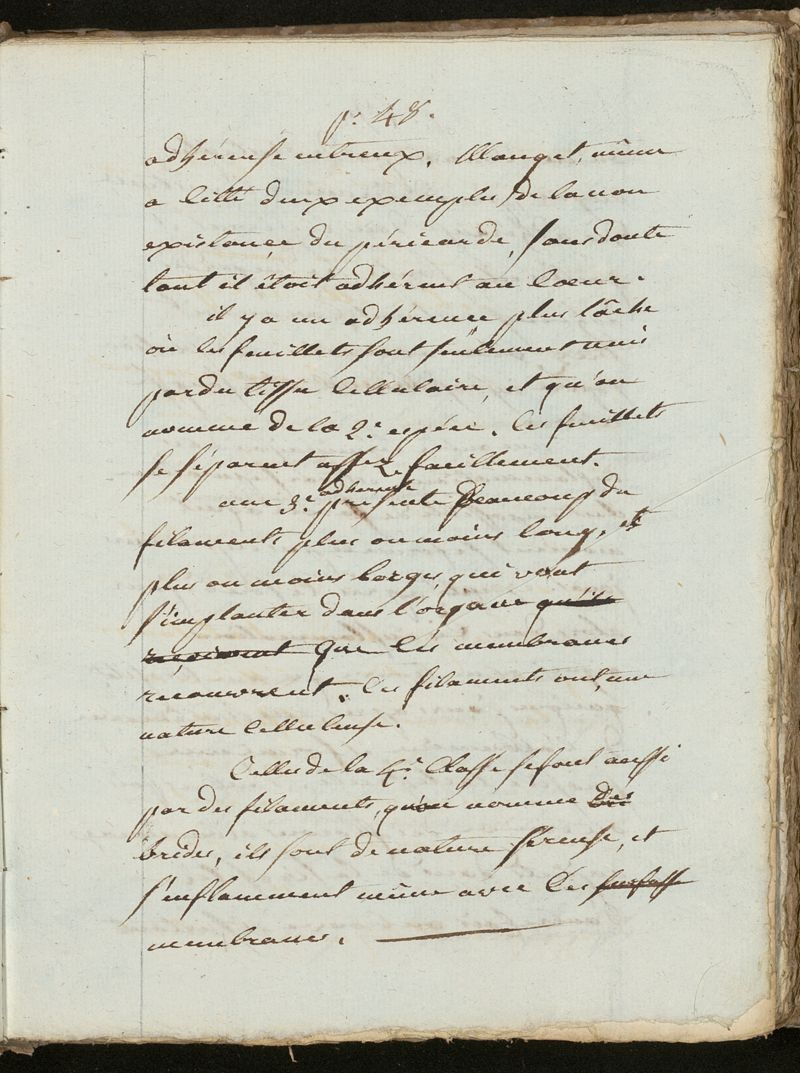 p. 48.
adhérense entreux. Mauget, même
a Citté deux exemples de la non
existance du péricarde, sans doute
tant il étoit adhérent au Cœur.
il y a un adhérence plus lâche
où les feuillets sont seulement unis
par du tissu Cellulaire, et qu'on
nomme de la 2.e espéce. Ces feuillets
se séparent assez facillement.
une 3.e adherence présente Beaucoup de
filaments plus ou moins long, et
plus ou moins larges, qui vont
s'implanter dans l'organe qu'ils
reçoivent que les membranes
recouvrent. Ces filaments ont une
nature Celluleuse.
Celles de la 4.e Classe se font aussi
par des filaments, qu'on nomme Des
brides, ils sont de nature séreuse, et
s'enflamment même avec les surfasse
membranes.